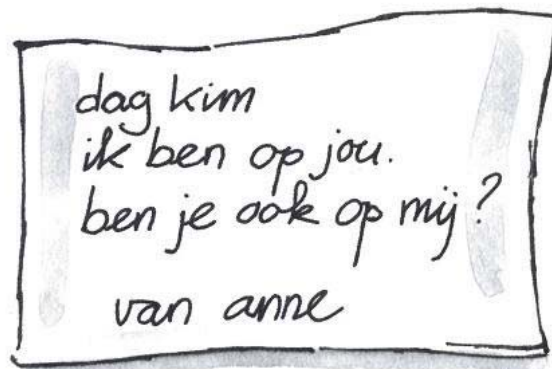 dag kim
ik ben op jou.
ben je ook op mij?
van anne